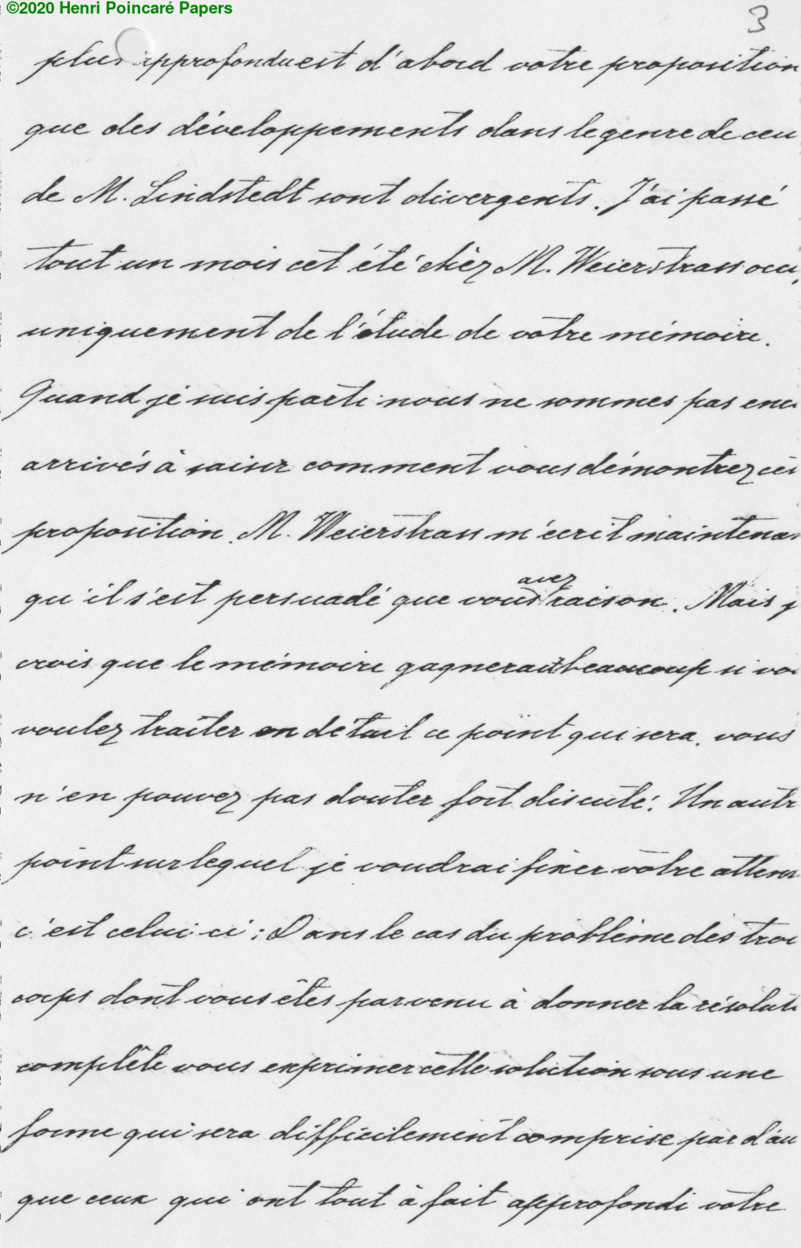 ©2020 Henri Poincaré Papers
3
plus approfondu est d'abord votre proposition
que des développements dans le genre de ceu
de M. Lindstedt sont divergents. J'ai passé
tout un mois cet été chèz M. Weierstrass occu
uniquement de l'étude de votre mémoire.
Quand je suis parti nous ne sommes pas enco
arrivés à saisir comment vous démontrez cet
proposition. M. Weierstrass m'écrit maintenan
qu'il s'est persuadé que vous avez raison. Mais j
crois que le mémoire gagnerait beaucoup si vo
voulez traiter en detail ce point qui sera, vous
n'en pouvez pas douter fort discuté. Un autr
point sur lequel je voudrai fixer vôtre atten
c'est celui-ci: Dans le cas du problème des troi
corps dont vous êtes parvenu à donner la résolut
complête vous exprimer cette solution sous une
forme qui sera difficilement comprise par d'au
que ceux qui ont tout à fait approfondi vôtre